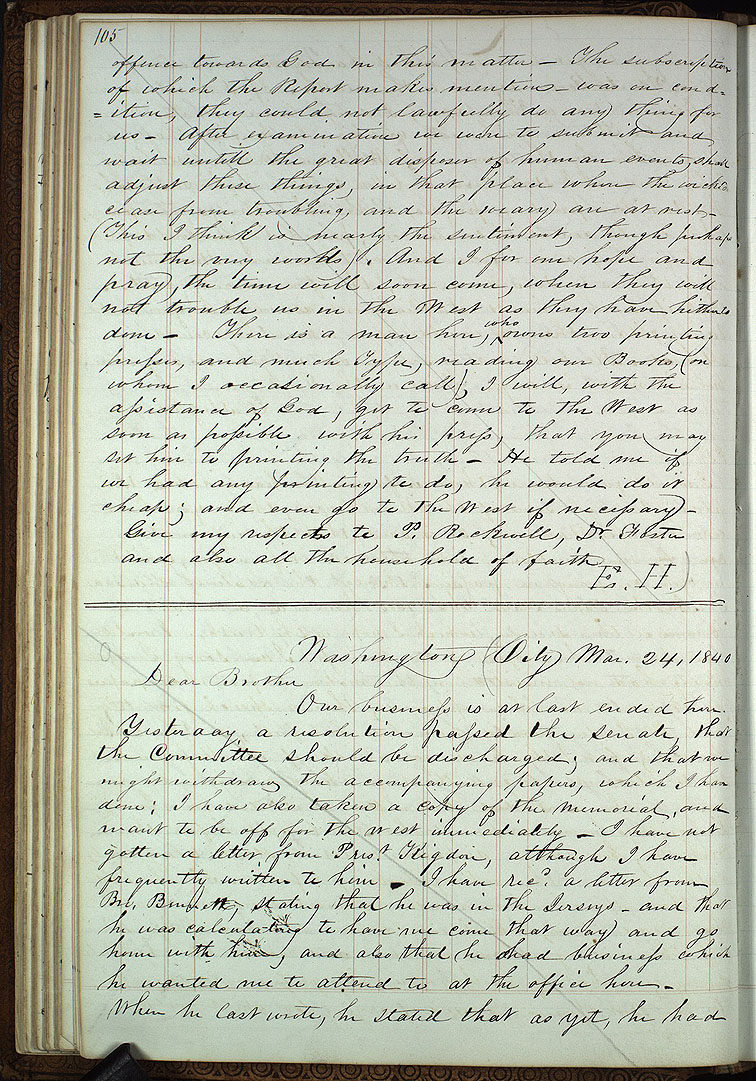 105
offence towards God in this matter — The subscription
of which the Report makes mention — was on cond=
=ition, they could not lawfully do any thing for
us — After examination we were to submit and
wait untill the great disposer of human events, shall
adjust these things, in that place where the wicked
cease from troubling, and the weary are at rest —
(This I think is nearly the sentiment, though perhaps
not the very words). And I for one hope and
pray, the time will soon come, when they will
not trouble us in the West as they have hitherto
done — There is a man here, who owns two printing
presses, and much Type, reading our Books, (on
whom I occasionally call), I will, with the
assistance of God, get to come to the West as
soon as possible with his press, that you may
set him to printing the truth — He told me if
we had any printing to do, he would do it
cheap; and even go to the West if necessary —
Give my respects to P. Rockwell, Dr Foster
and also all the household of faith
Es. H.)
Washington (City) Mar. 24, 1840
Dear Brother
Our business is at last ended here.
Yesterday a resolution passed the senate, that
the Committee should be discharged; and that we
might withdraw the accompanying papers, which I have
done; I have also taken a copy of the memorial, and
want to be off for the west immediately — I have not
gotten a letter from Prest. Rigdon, although I have
frequently written to him — I have recd. a letter from
Bro, Bennett, stating that he was in the Jerseys — and that
he was calculating to have me come that way and go
home with him, and also that he had business which
he wanted me to attend to at the office here —
When he last wrote, he stated that as yet, he had